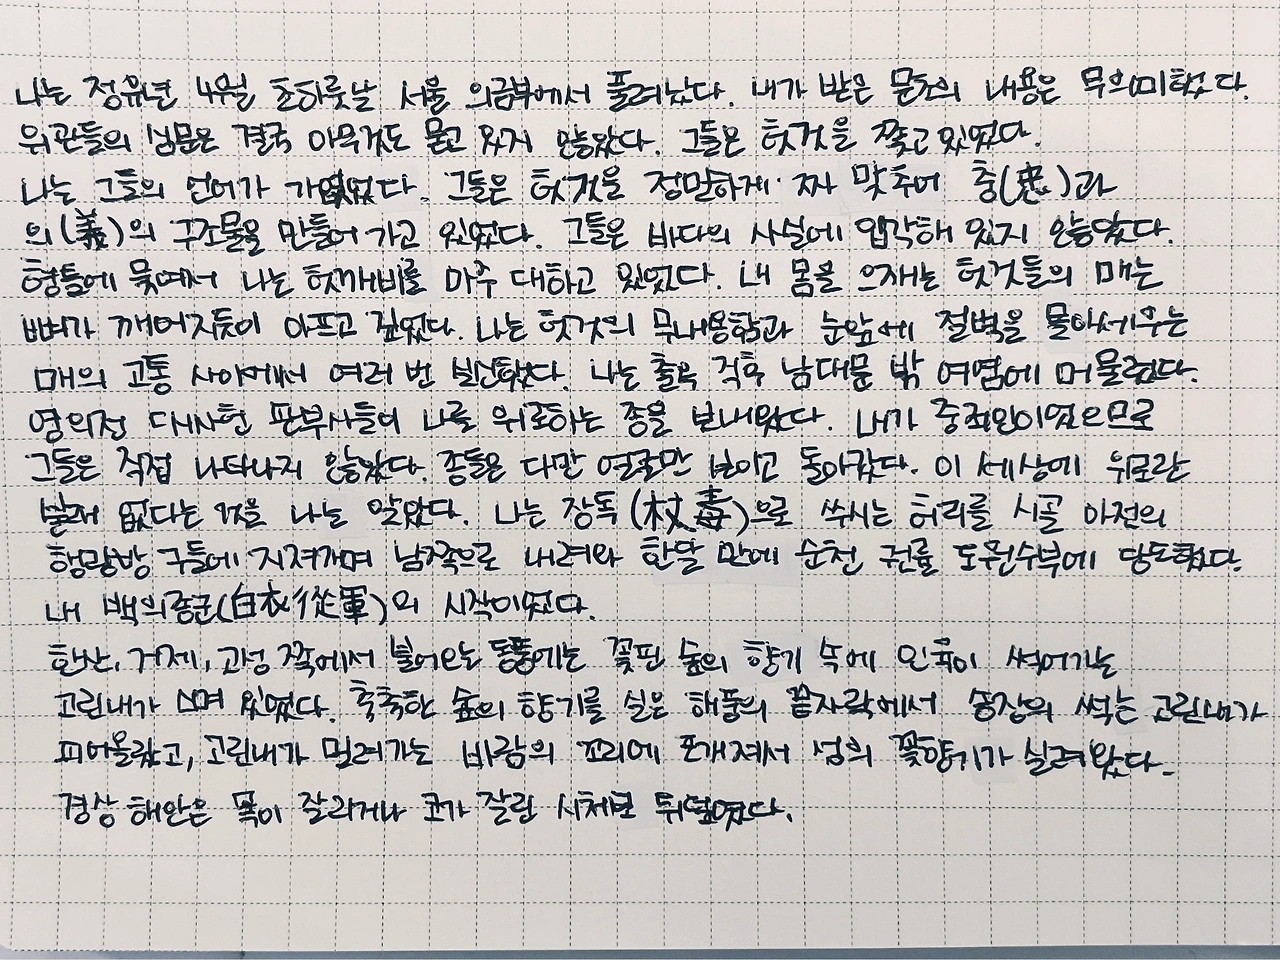 나는 정유년 4월 초하룻날 서울 의금부에서 풀려났다. 내가 받은 문초의 내용은 무의미했다.
위관들의 심문은 결국 아무것도 묻고 있지 않았다. 그들은 헛것을 쫓고 있었다.
나는 그들의 언어가 가엾었다. 그들은 헛것을 정밀하게 짜 맞추어 충(忠)과
의(義)의 구조물을 만들어 가고 있었다. 그들은 바다의 사실에 입각해 있지 않았다.
형틀에 묶여서 나는 헛깨비를 마주 대하고 있었다. 내 몸을 으깨는 헛것들의 매는
뼈가 깨어지듯이 아프고 깊었다. 나는 헛것의 무내용함과 눈앞에 절벽을 몰아세우는
매의 고통 사이에서 여러 번 실신했다. 나는 출옥 직후 남대문 밖 여염에 머물렀다.
영의정 대사헌 판부사들이 나를 위로하는 종을 보내왔다. 내가 중죄인이었으므로
그들은 직접 나타나지 않았다. 종들은 다만 얼굴만 보이고 돌아갔다. 이 세상에 위로란
본래 없다는 것을 나는 알았다. 나는 장독(杖毒)으로 쑤시는 허리를 시골 아전의
행랑방 구들에 지져가며 남쪽으로 내려와 한달 만에 순천 권률 도원수부에 당도했다.
내 백의종군(白衣從軍)의 시작이었다.
한산, 거제, 고성 쪽에서 불어오는 동풍에는 꽃핀 숲의 향기 속에 인육이 썩어가는
고린내가 스며 있었다. 축축한 숲의 향기를 실은 해풍의 끝자락에서 송장의 썩는 고린내가
피어올랐고, 고린내가 밀려가는 바람의 꼬리에 포개져서 섬의 꽃향기가 실려왔다.
경상 해안은 목이 잘리거나 코가 잘린 시체로 뒤덮였다.